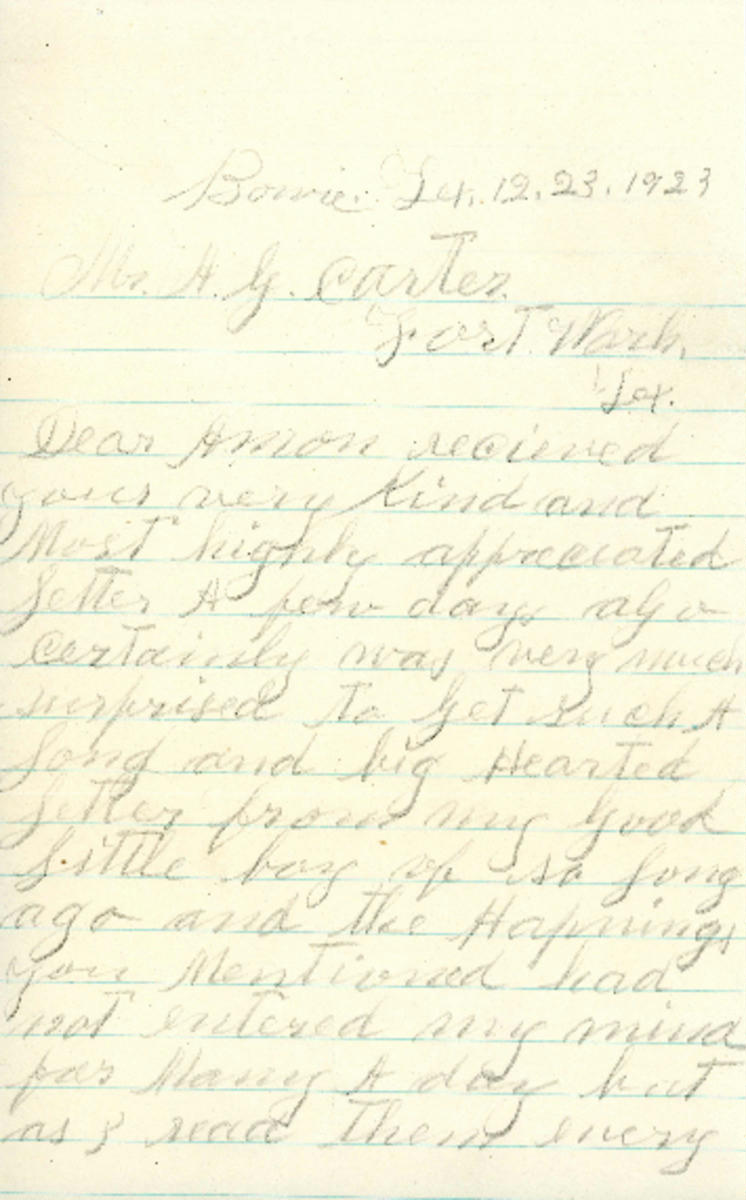 Bowie. Tex. 12. 23. 1923
Mr. A. G. Carter.
Fort. Worth,
Tex.
Dear Amon recieved
your very Kind and
Most highly appreciated
letter A few days ago
Certainly was very much
surprised to get such A
long and big Hearted
letter from my good
little boy of so long
ago and the Hapnings
you Mentioned had
not entered my mind
for Many A day but
as I read them every